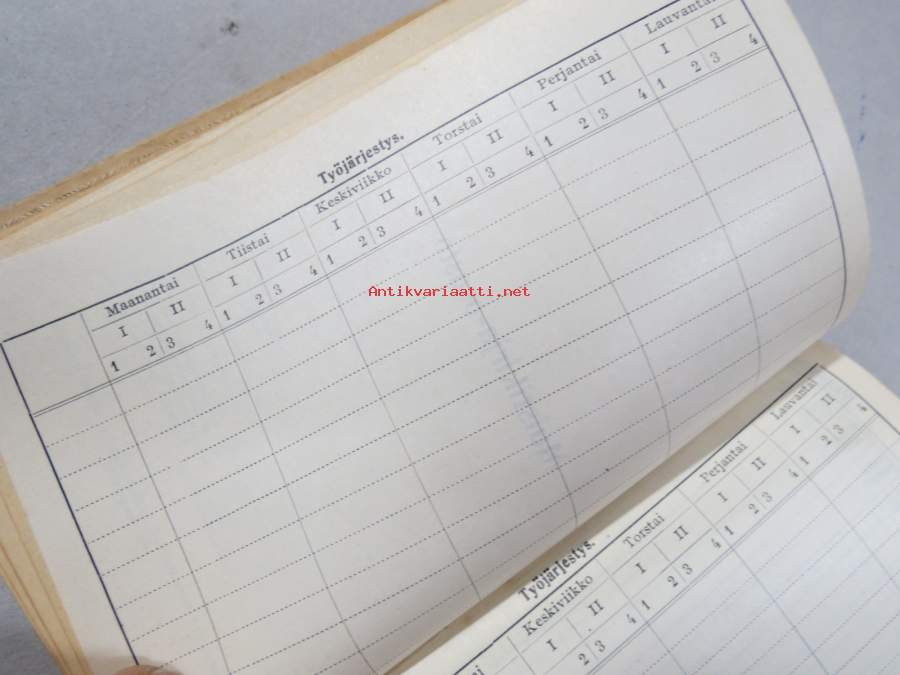 Työjärjestys.
Maanantai Tiistai Keskiviikko Torstai Perjantai Lauvantai
I II I II I II I II I II I II
1 2 3 4 1 2 3 4 1 2 3 4 1 2 3 4 1 2 3 4 1 2 3 4
Antikvariaatti.net
Työjärjestys.
Keskiviikko Torstai Perjantai Lauvantai
I II I II I II I II
2 3 4 1 2 3 4 1 2 3 4 1 2 3 4